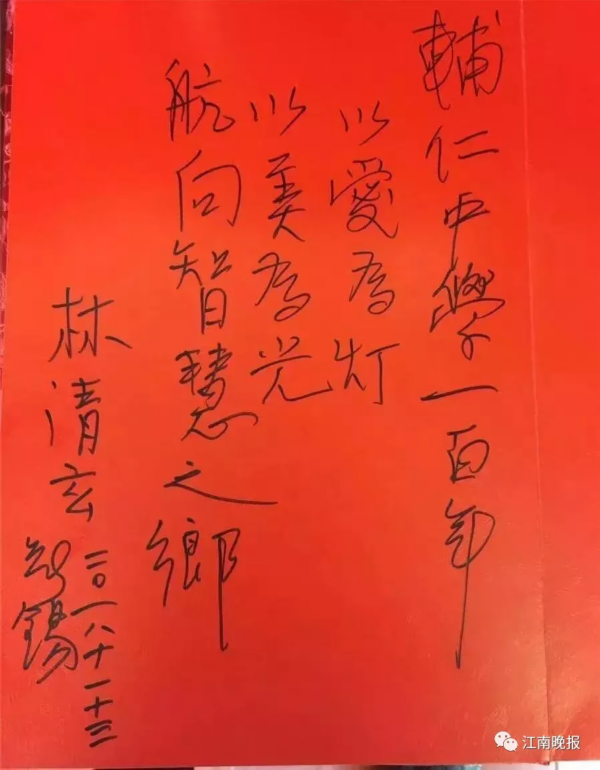 輔仁中學一百年
以愛為灯
以美為光
航向智慧之鄉
林清玄
二〇一八十一十三
無錫
江南晚报